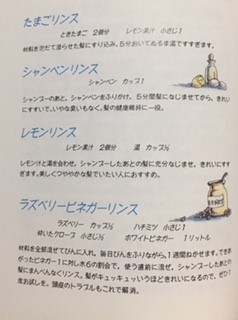 たまごリンス
ときたまご 2個分 レモン果汁 小さじ1
材料を泡だて濡らせた髪にすり込み、5分おいてぬるま湯ですすぎます。
シャンペンリンス
シャンペン カップ1
シャンプーのあと、シャンペンをふりかけて、5分間髪になじませてから、きれい
にすすいで。いやな臭いもなく、髪の健康維持に一役。
レモンリンス
レモン果汁 2個分 湯 カップ½
レモン汁と湯を合わせ、シャンプーしたあとの髪に充分なじませ、きれいにすす
ぎます。美しくつややかな髪でいたい人におすすめ。
ラズベリービネガーリンス
ラズベリー カップ½ ハチミツ 小さじ1
砕いたクローブ 小さじ½ ホワイトビネガー 1リットル
材料を全部混ぜてびんに入れ、毎日びんをふりながら、1週間ねかせます。できあ
がったビネガー1に対し水6の割合で、使う直前に混ぜ、シャンプーしたあとの
髪にまんべんなくリンス。髪がキュッキューッというほどきれいになるので、ぜひ1
度お試しを。頭皮のトラブルもこれで解消。